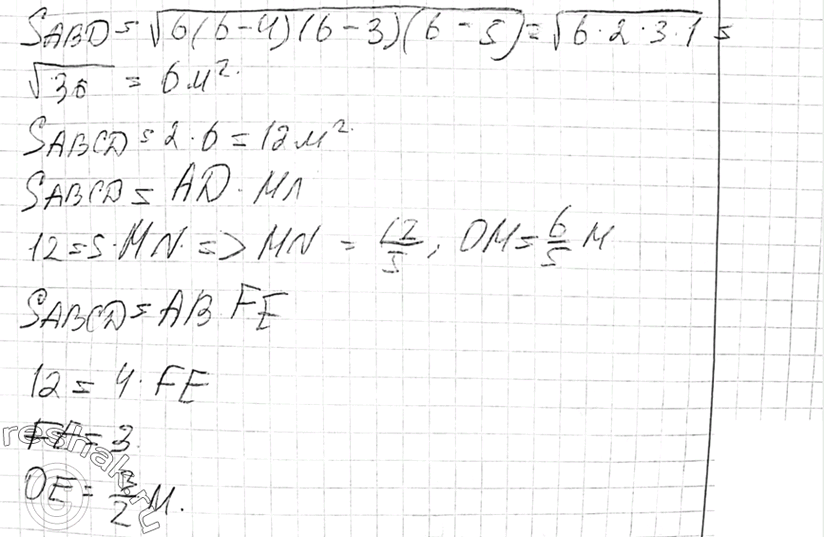 S_ABD = √6(6-4)(6-3)(6-5) = √6·2·3·1 =
√36 = 6 м².
S_ABCD = 2·6 = 12 м².
S_ABCD = AD · MN
12 = 5·MN => MN = 12/5, OM = 6/5 м
S_ABCD = AB FE
12 = 4· FE
FE = 3
OE = 3/2 м.
reshak.ru